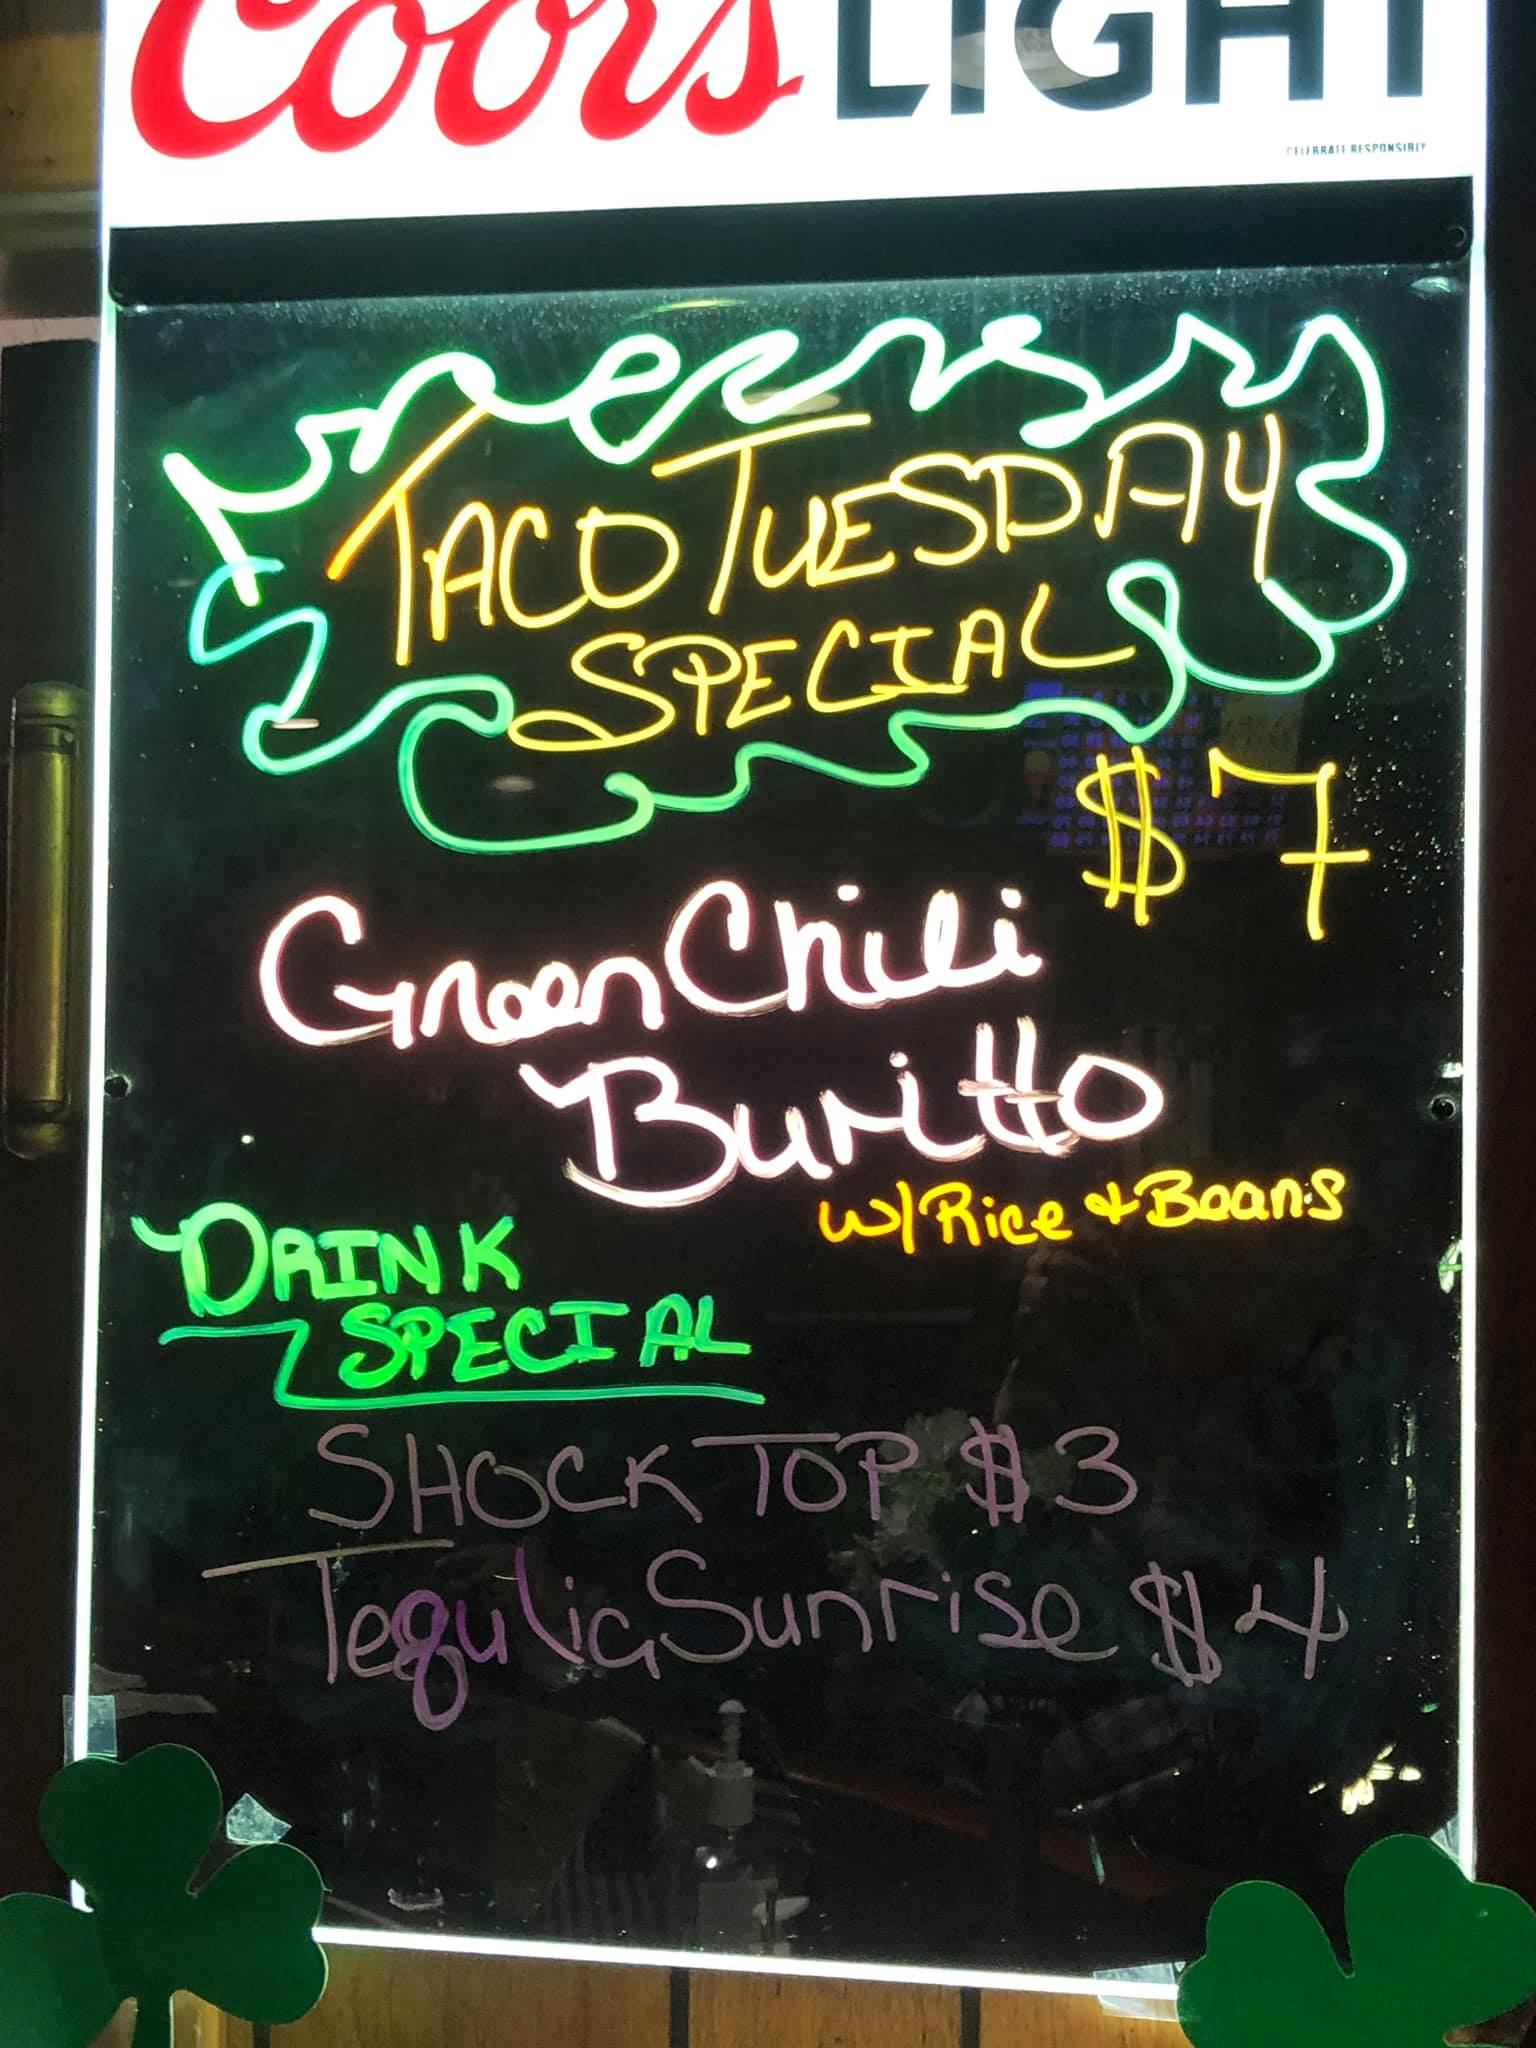 Coors LIGHT
CELEBRATE RESPONSIBLY
TACO TUESDAY
SPECIAL
$7
Green Chili
Buritto
w/Rice & Beans
DRINK
SPECIAL
SHOCK TOP $3
Tequlia Sunrise $4